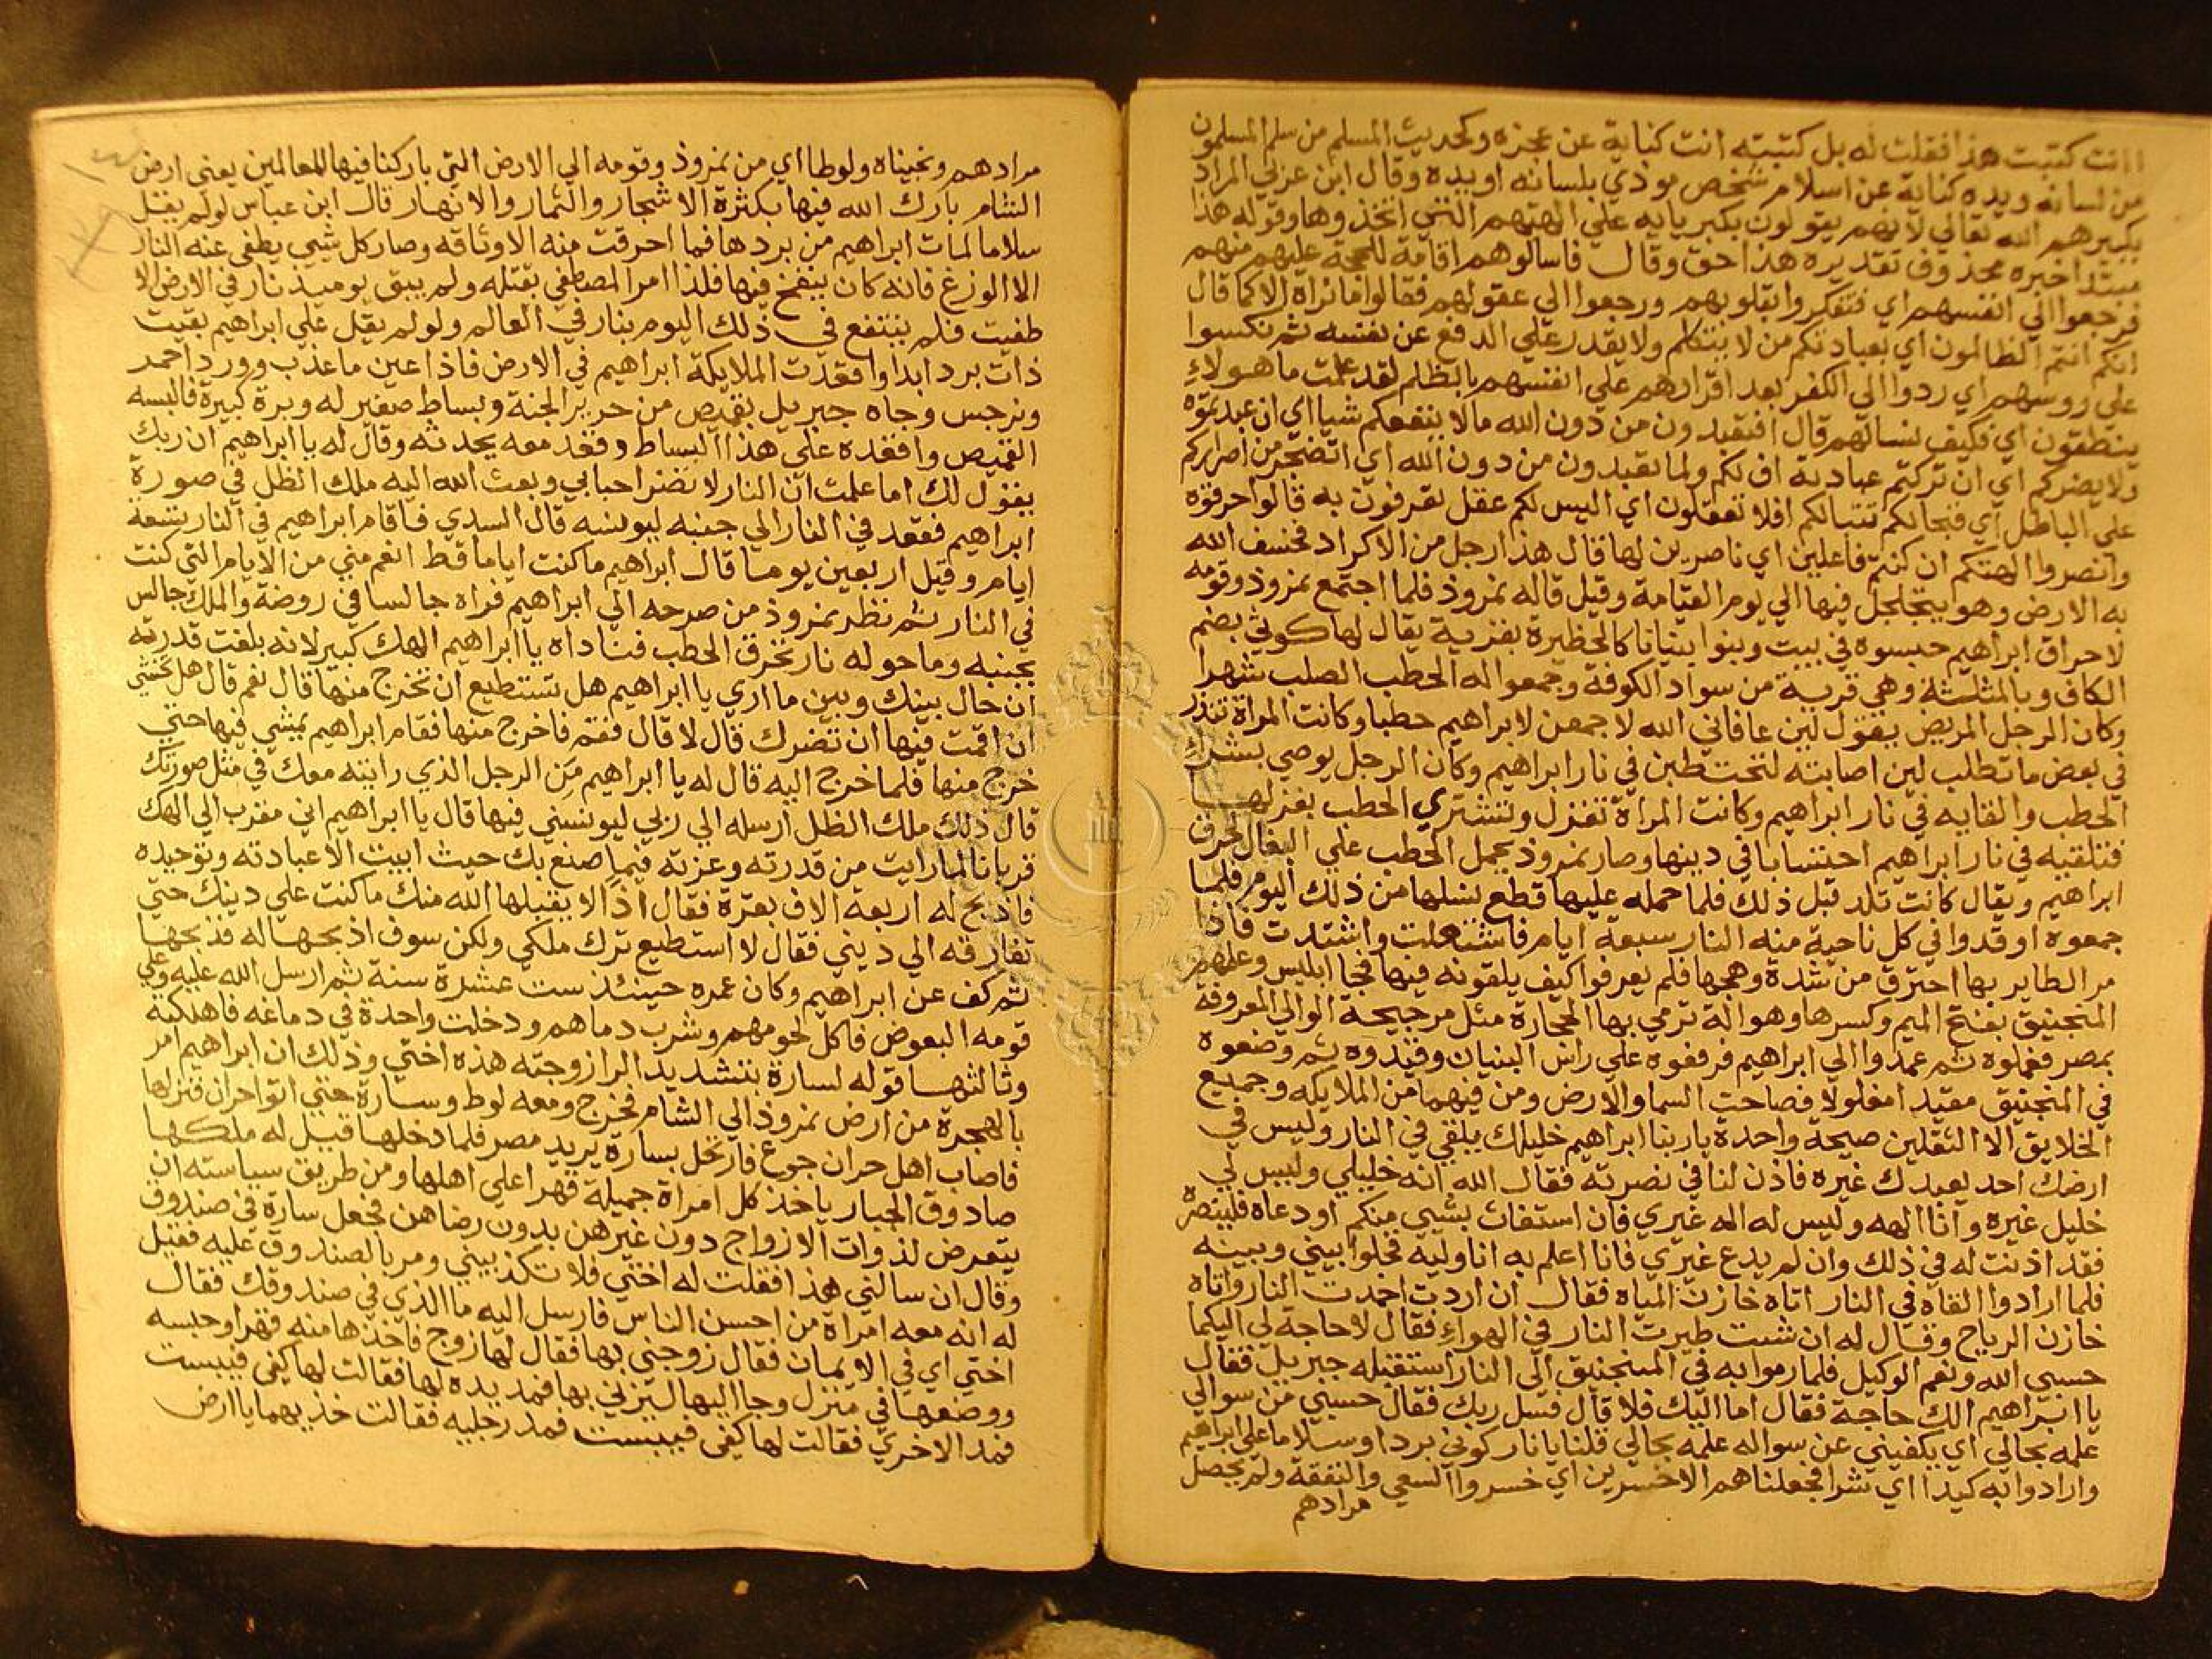 اانت كتبت هذا فقلت له بل كتبته انت كناية عن عجزه وكحديث المسلم من سلم المسلمون
من لسانه ويده كناية عن اسلام شخص يوذي بلسانه او يده وقال ابن عزني المراد
بكبيرهم الله تعالي لانهم يقولون بكبريايه علي الهتهم التي اتخذوها وقوله هذا
مبتدا خبره محذوف تقديره هذا حق وقال فاسالوهم اقامة للحجة عليهم منهم
فرجعوا الي انفسهم اي فتفكروا بقلوبهم ورجعوا الي عقولهم فقالوا ما نراه الا كما قال
انكم انتم الظالمون اي بعبادتكم من لا يتكلم ولا يقدر علي الدفع عن نفسه ثم نكسوا
علي روسهم اي ردوا الي الكفر بعد اقرارهم علي انفسهم بالظلم لقد علمت ما هولاء
ينطقون اي فكيف نسالهم قال افتعبدون من دون الله مالا ينفعكم شيا اي ان عبدتموه
ولا يضركم اي ان تركتم عبادته اف لكم ولما تعبدون من دون الله اي اتضجر من اصراركم
علي الباطل اي فتبا لكم افلا تعقلون اي اليس لكم عقل تعرفون به قالوا حرقوه
وانصروا الهتكم ان كنتم فاعلين اي ناصرين لها قال هذا رجل من الاكراد فخسف الله
به الارض وهو يتجلجل فيها الي يوم القيامة وقيل قاله نمروذ فلما اجتمع نمروذ وقومه
لاحراق ابراهيم حبسوه في بيت وبنوا بنيانا كالحظيرة بقرية يقال لها كوثي بضم
الكاف وبالمثلثة وهي قرية من سواد الكوفة وجمعوا له الحطب الصلب شهرا
وكان الرجل المريض يقول لين عافاني الله لاجمعن لابراهيم حطبا وكانت المراة تنذر
في بعض ما تطلب لين اصابته لتحتطبن في نار ابراهيم وكان الرجل يوصي بشراء
الحطب والقايه في نار ابراهيم وكانت المراة تغزل وتشتري الحطب بغزلها
فتلقيه في نار ابراهيم احتسابا في دينها وصار نمروذ يحمل الحطب علي البغال لحرق
ابراهيم ويقال كانت تلد قبل ذلك فلما حمله عليها قطع نسلها من ذلك اليوم فلما
جمعوه اوقدوا في كل ناحية منه النار سبعة ايام فاشتعلت واشتدت فاذا
مر الطاير بها احترق من شدة وهجها فلم يعرفوا كيف يلقونه فيها فجا ابليس وعلمهم
المنجنيق بفتح الميم وكسرها وهو الة ترمي بها الحجارة مثل مرجيحة الوالي المعروفة
بمصر فعملوه ثم عمدوا الي ابراهيم فرفعوه علي راس البنيان وقيدوه ثم وضعوه
في المنجنيق مقيدا مغلولا فصاحت السما والارض ومن فيهما من الملايكه وجميع
الخلايق الا الثقلين صيحة واحدة يا ربنا ابراهيم خليلك يلقي في النار وليس في
ارضك احد يعبدك غيره فاذن لنا في نصرته فقال الله انه خليلي وليس لي
خليل غيره وانا الهه وليس له اله غيري فان استغاث بشيي منكم او دعاه فلينصره
فقد اذنت له في ذلك وان لم يدع غيري فانا اعلم به انا وليه فخلوا بيني وبينه
فلما ارادوا القاه في النار اتاه خازن المياه فقال ان اردت اخمدت النار واتاه
خازن الرياح وقال له ان شيت طيرت النار في الهواء فقال لا حاجة لي اليكما
حسبي الله ونعم الوكيل فلما رموا به في المنجنيق الي النار استقبله جبريل فقال
يا ابراهيم الك حاجة فقال اما اليك فلا قال فسل ربك فقال حسبي من سوالي
علمه بحالي اي يكفيني عن سواله علمه بحالي قلنا يا نار كوني بردا وسلاما علي ابراهيم
وارادوا به كيدا اي شرا فجعلناهم الاخسرين اي خسروا السعي والنفقة ولم يحصل
مرادهم
مرادهم ونجيناه ولوطا اي من نمروذ وقومه الي الارض التي باركنا فيها للعالمين يعني ارض
الشام بارك الله فيها بكثرة الاشجار والثمار والانهار قال ابن عباس لو لم يقل
سلاما لمات ابراهيم من بردها فما احرقت منه الا وثاقه وصار كل شيي يطفي عنه النار
الا الوزغ فانه كان ينفخ فيها فلذا امر المصطفي بقتله ولم يبق يوميذ نار في الارض الا
طفيت فلم ينتفع في ذلك اليوم بنار في العالم ولو لم يقل علي ابراهيم بقيت
ذات برد ابدا وافقدت الملايكة ابراهيم في الارض فاذا عين ما عذب وورد احمر
ونرجس وجاه جبريل بقميص من حرير الجنة وبساط صغير له وبرة كبيرة فالبسه
القميص واقعده علي هذا البساط وقعد معه يحدثه وقال له يا ابراهيم ان ربك
يقول لك اما علمت ان النار لا تضر احبابي وبعث الله اليه ملك الظل في صورة
ابراهيم فقعد في النار الي جنبه ليونسه قال السدي فاقام ابراهيم في النار سبعة
ايام وقيل اربعين يوما قال ابراهيم ما كنت اياما قط انعم مني من الايام التي كنت
في النار ثم نظر نمروذ من صرحه الي ابراهيم فراه جالسا في روضة والملك جالس
بجنبه وما حوله نار تحرق الحطب فناداه يا ابراهيم الهك كبير لانه بلغت قدرته
ان حال بينك وبين ما اري يا ابراهيم هل تستطيع ان تخرج منها قال نعم قال هل تخشي
ان اقمت فيها ان تضرك قال لا قال فقم فاخرج منها فقام ابراهيم يمشي فيها حتي
خرج منها فلما خرج اليه قال له يا ابراهيم من الرجل الذي رايته معك في مثل صورتك
قال ذلك ملك الظل ارسله الي ربي ليونسني فيها قال يا ابراهيم اني مقرب الي الهك
قربانا لما رايت من قدرته وعزته فيما صنع بك حيث ابيت الا عبادته وتوحيده
فاذبح له اربعة الاف بقرة فقال اذا لا يقبلها الله منك ما كنت علي دينك حتي
تفارقه الي ديني فقال لا استطيع ترك ملكي ولكن سوف اذبحها له فذبحها
ثم كف عن ابراهيم وكان عمره حينئذ ست عشرة سنة ثم ارسل الله عليه وعلي
قومه البعوض فاكل لحومهم وشرب دماهم ودخلت واحدة في دماغه فاهلكته
وثالثها قوله لسارة بتشديد الرا زوجته هذه اختي وذلك ان ابراهيم امر
بالهجرة من ارض نمروذ الي الشام فخرج ومعه لوط وسارة حتي اتوا حران فنزلها
فاصاب اهل حران جوع فارتحل بسارة يريد مصر فلما دخلها قيل له ملكها
صادوق الجبار ياخذ كل امراة جميلة قهرا علي اهلها ومن طريق سياسته ان
يتعرض لذوات الازواج دون غيرهن بدون رضاهن فجعل سارة في صندوق
وقال ان سالني هذا فقلت له اختي فلا تكذبيني ومر بالصندوق عليه فقيل
له انه معه امراة من احسن الناس فارسل اليه ما الذي في صندوقك فقال
اختي اي في الايمان فقال زوجني بها فقال لها زوج فاخذها منه قهرا وحبسه
ووضعها في منزل وجا اليها ليزني بها فمد يده لها فقالت لها كفي فيبست
فمد الاخري فقالت لها كفي فيبست فمد رجليه فقالت خذيهما يا ارض